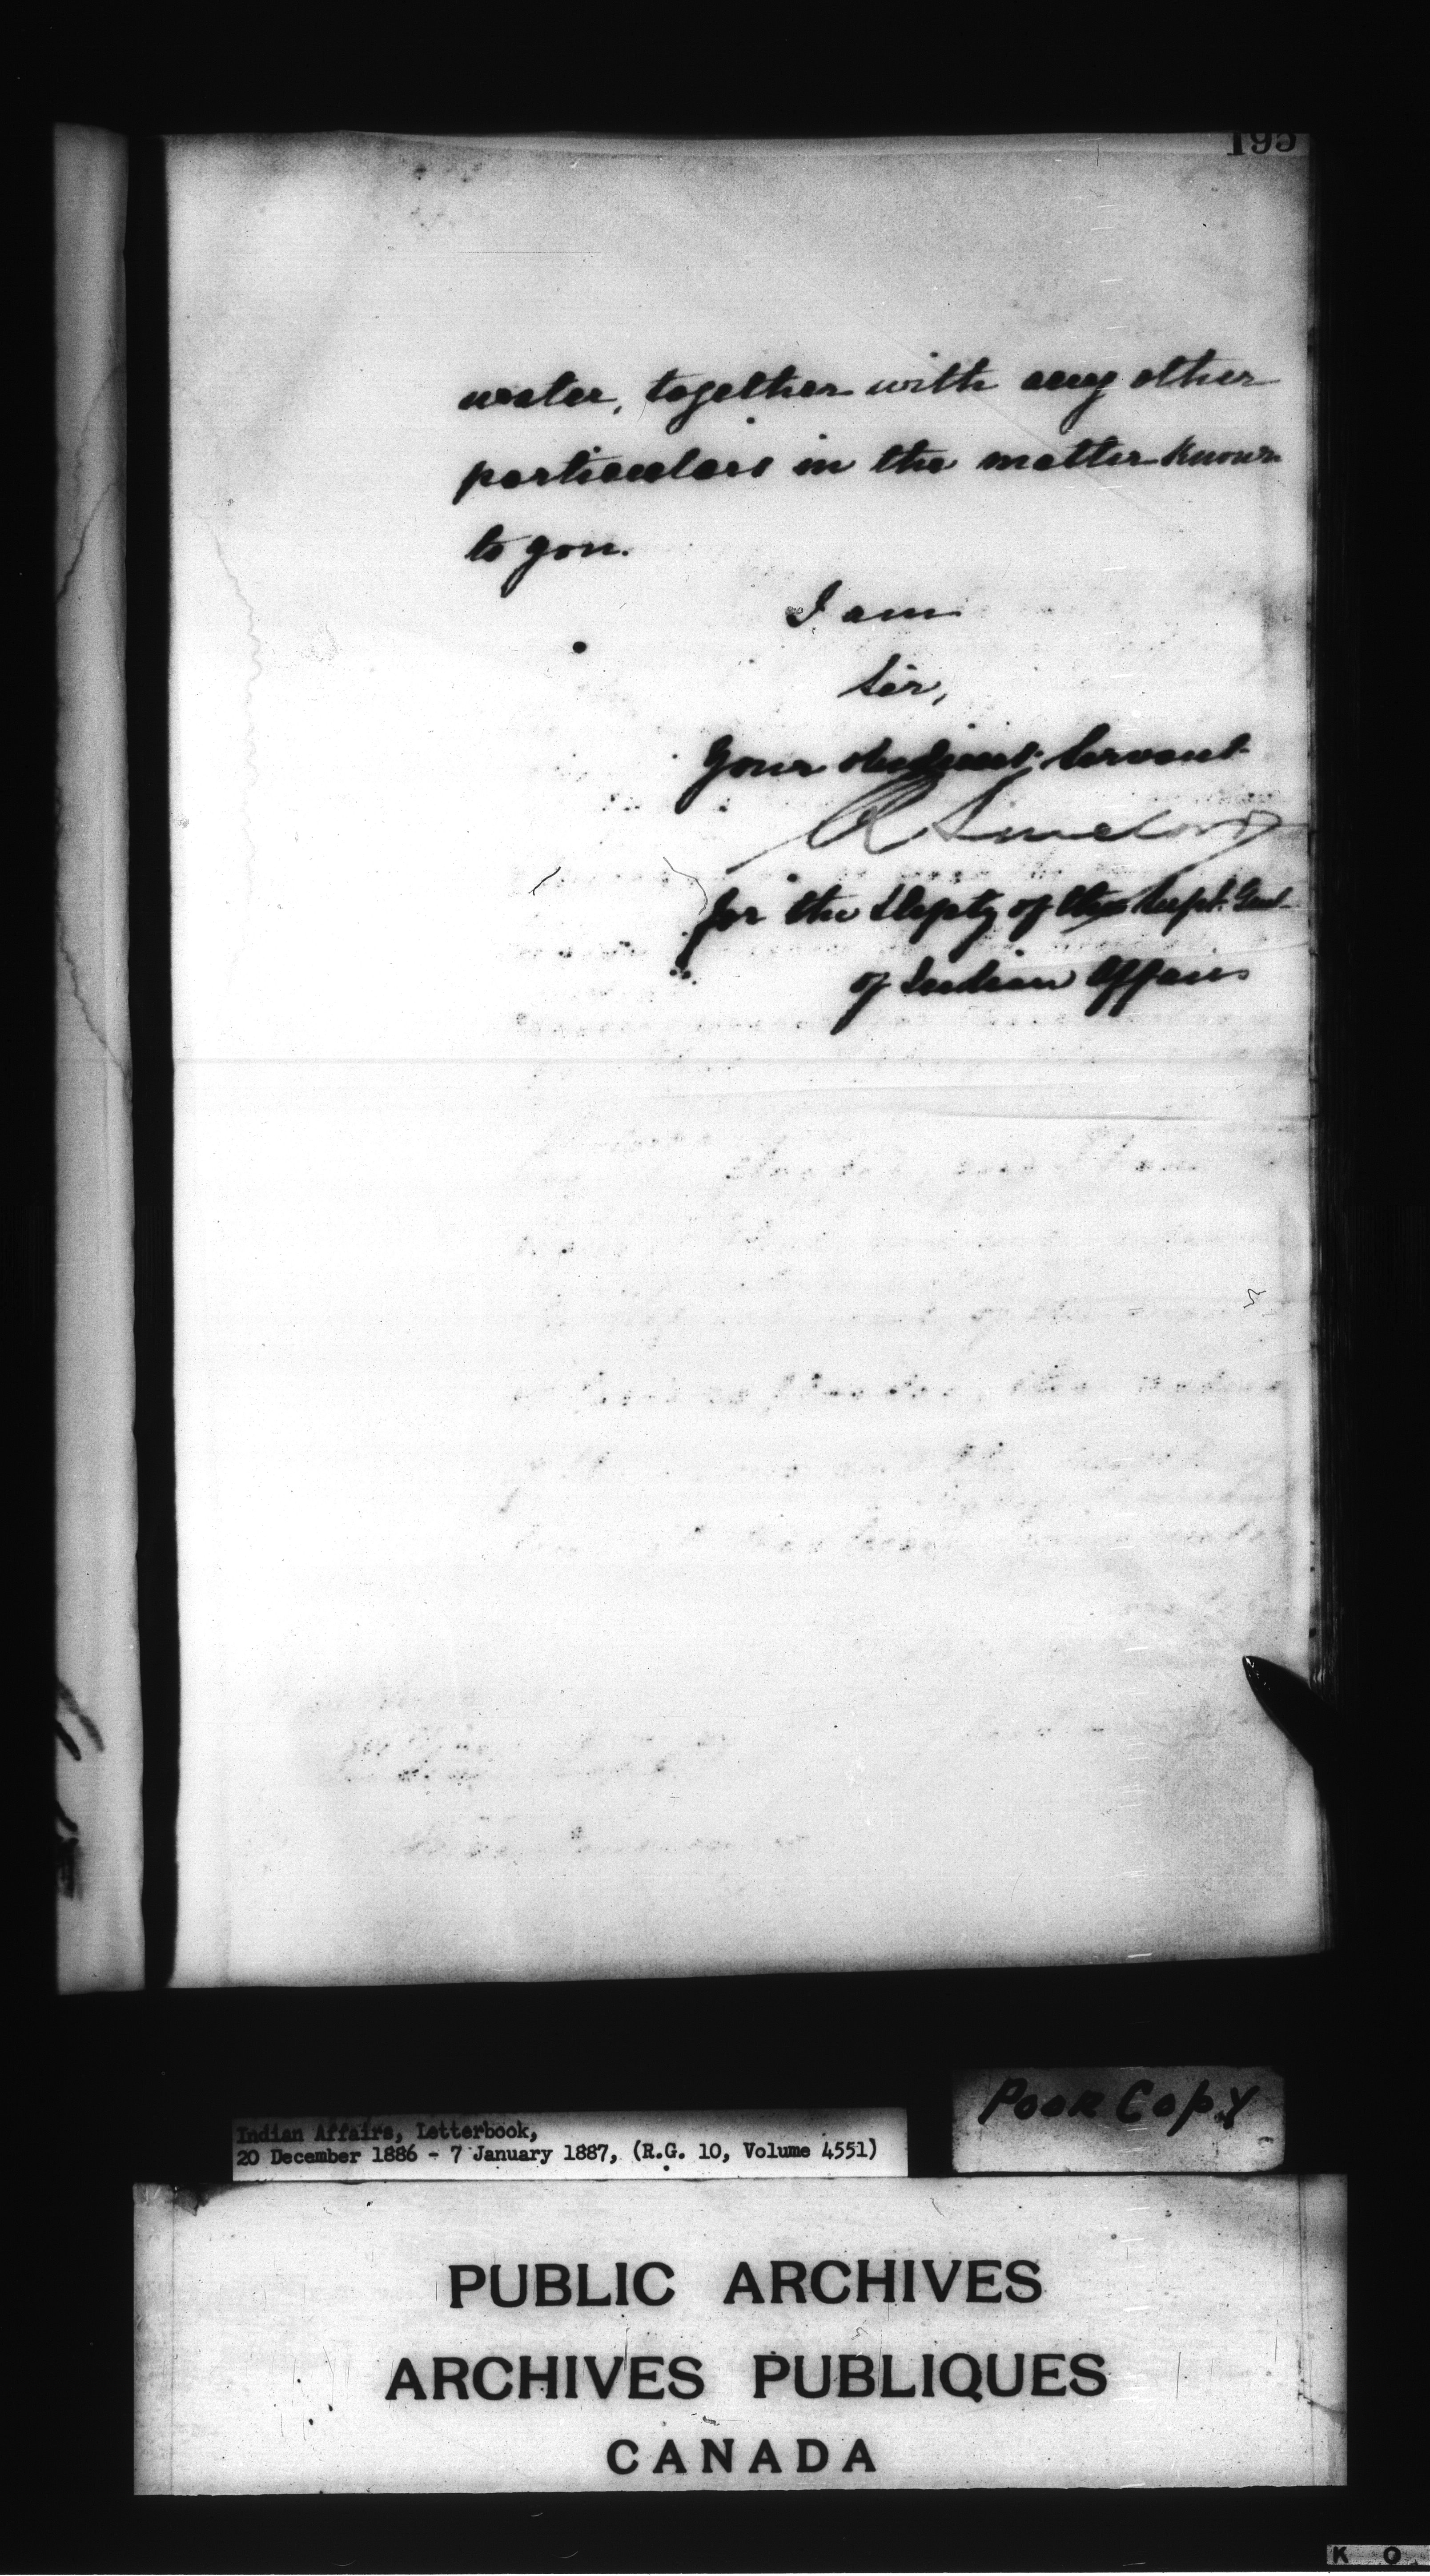 195
water, together with any other
particulars in the matter known
to you.
I am
Sir,
Your obedient Servant
R Sinclair
for the Depty of the Supt. Genl.
of Indian Affairs
Poor Copy
Indian Affairs, Letterbook,
20 December 1886 - 7 January 1887, (R.G. 10, Volume 4551)
PUBLIC ARCHIVES
ARCHIVES PUBLIQUES
CANADA
K O